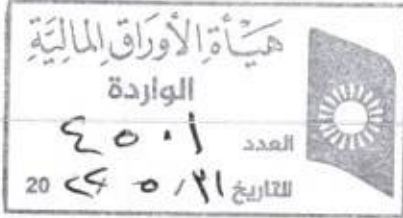 هَيْأَةِ الأَوْرَاقِ المَالِيَّةِ
الواردة
العدد ٤٥٠١
التاريخ ٢١/ ٥ ٢٤ 20